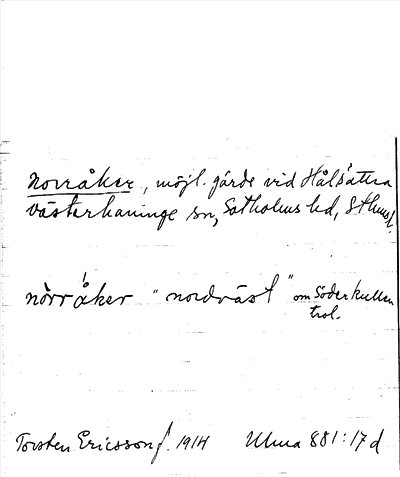 Norråker, möjl. gärde vid Hålsättra
Västerhaninge sn, Sotholms hd, Sthms l.
nòrråker "nordväst" om Söderkullen
trol.
Torsten Ericsson f. 1914 Ulma 881:17 d